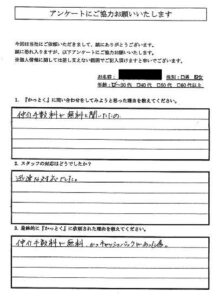 アンケートにご協力お願いいたします
今回は当社にご依頼いただきまして、誠にありがとうございます。
誠に恐れ入りますが、以下アンケートにご協力お願いいたします。
※個人情報に関しては差し支えない範囲でご記入頂けますと幸いでございます。
お名前： 性別：□男 ☑女
年齢：☑~30代 □40代 □50代 □60代以上
1. 『かっとく』に問い合わせをしてみようと思った理由を教えてください。
仲介手数料が無料と聞いたため。
2. スタッフの対応はどうでしたか？
迅速な対応でした。
3. 最終的に『かっとく』に依頼された理由を教えてください。
仲介手数料が無料、かつキャッシュバックがあった為。